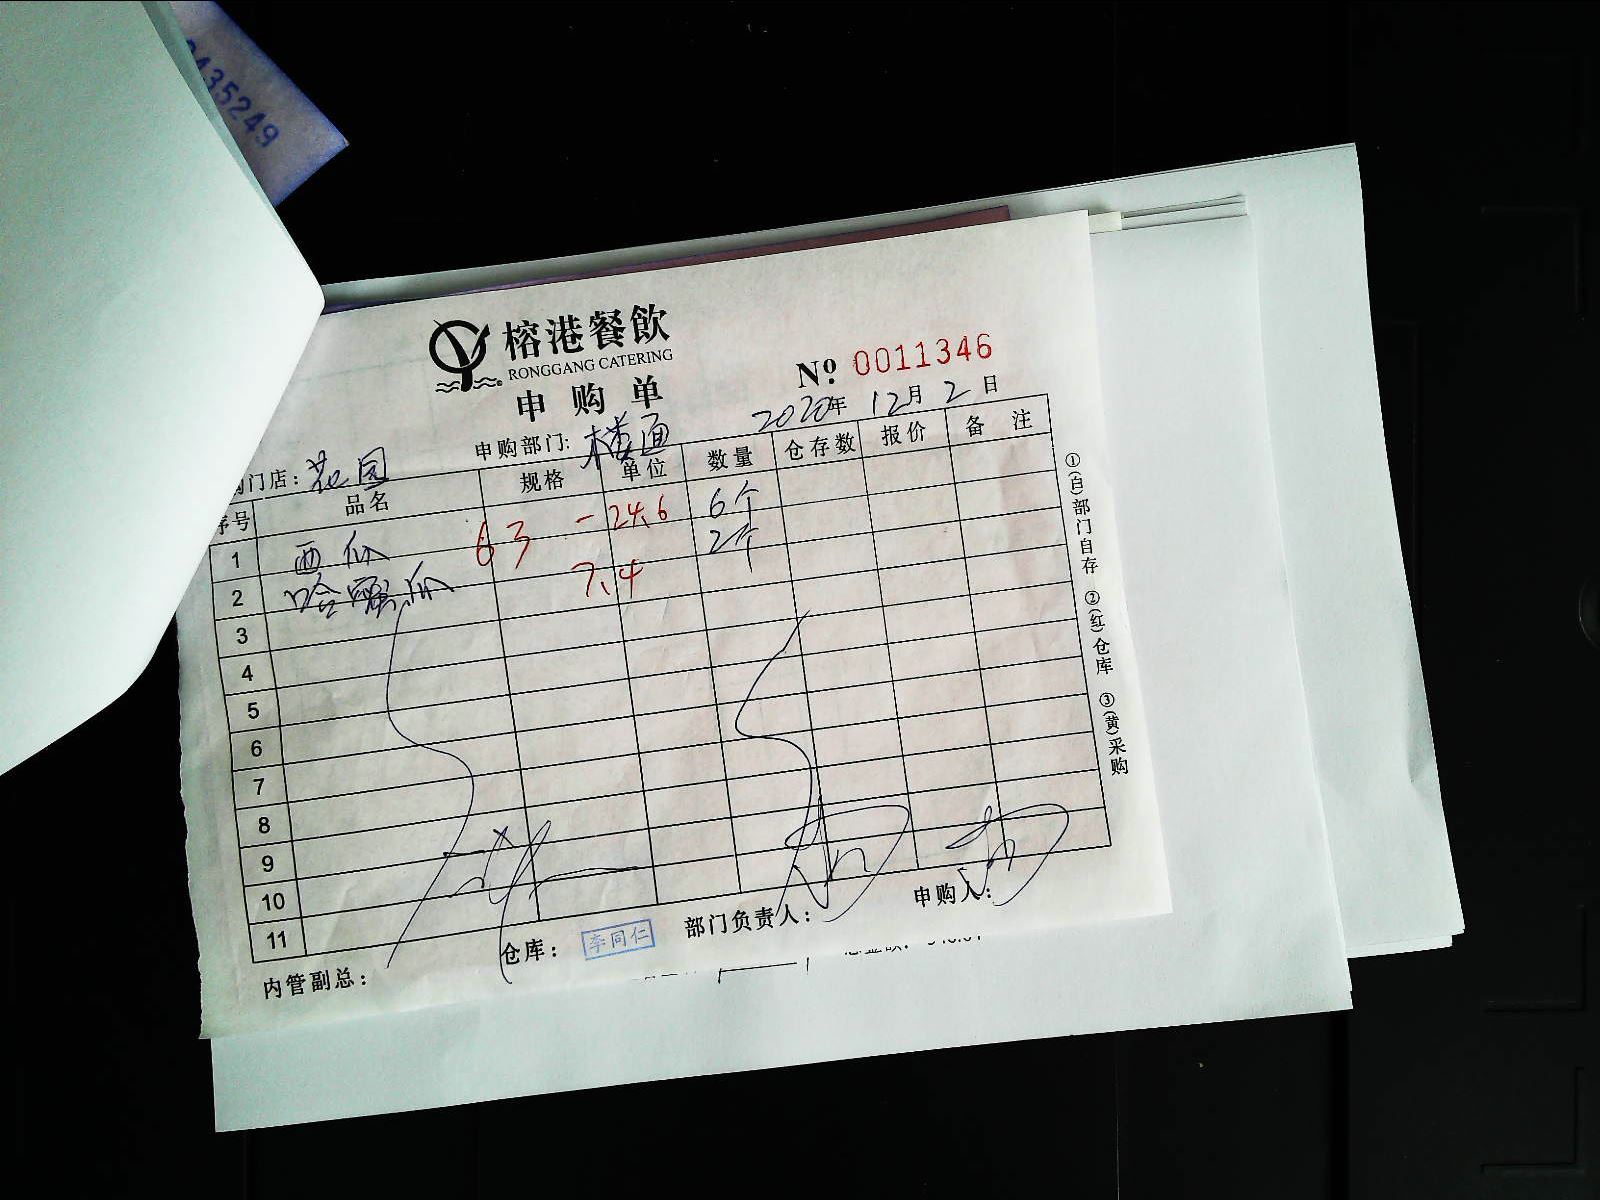 435249
榕港餐飲
RONGGANG CATERING
申购单
Nº 0011346
2020年 12月 2日
门店：花园 申购部门：楼面
序号 品名 规格 单位 数量 仓存数 报价 备注
1 西瓜 63 - 24.6 6个
2 哈蜜瓜 7.4 2个
3
4
5
6
7
8
9
10
11
内管副总： 仓库： 李同仁 部门负责人： 申购人：
①(白)部门自存 ②(红)仓库 ③(黄)采购